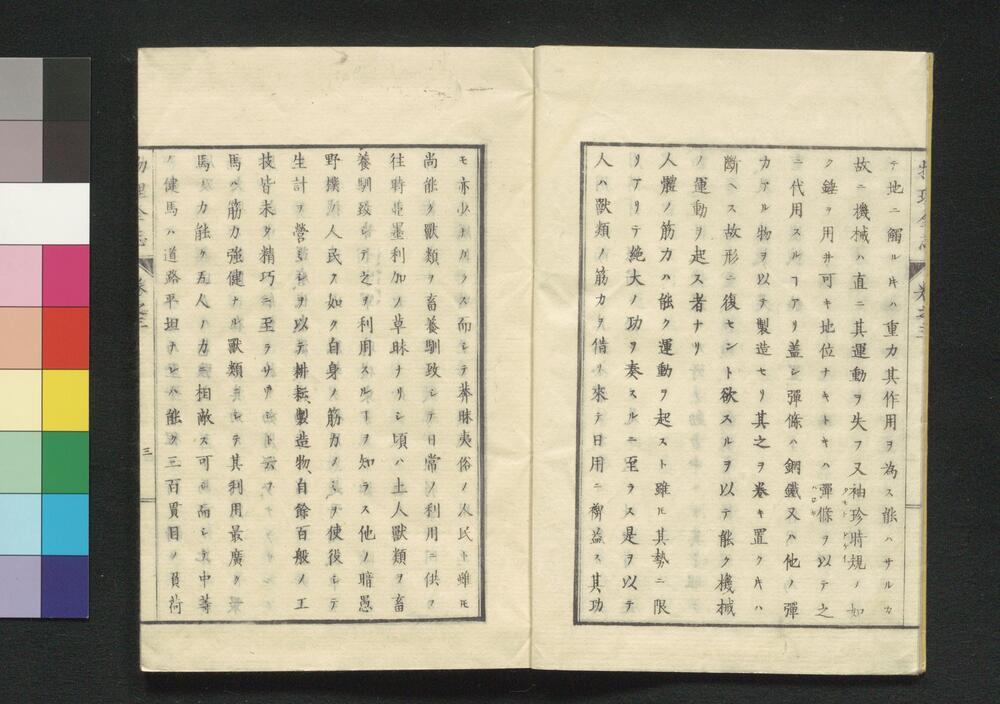 物理全志 卷之三
テ地ニ觸ル𪜈ハ重力其作用ヲ為ス能ハサルカ
故ニ機械ハ直ニ其運動ヲ失フ又袖珍時規ノ如
ク錘ヲ用井可キ地位ナキトキハ彈條ヲ以テ之
ニ代用スルヿアリ蓋シ彈條ハ鋼鐵又ハ他ノ彈
力アル物ヲ以テ製造セリ其之ヲ卷キ置ク𪜈ハ
斷ヘス故形ニ復セント欲スルヲ以テ能ク機械
ノ運動ヲ起ス者ナリ
人體ノ筋力ハ能ク運動ヲ起スト雖𪜈其勢ニ限
リアリテ絶大ノ功ヲ奏スルニ至ラス是ヲ以テ
人ハ獸類ノ筋力ヲ借リ來テ日用ニ裨益ス其功
モ亦少ナカラス而シテ莽昧夷俗ノ人民ト雖𪜈
尚能ク獸類ヲ畜養馴致シテ日常ノ利用ニ供ス
往時亞墨利加ノ草昧ナリシ頃ハ土人獸類ヲ畜
養馴致シテ之ヲ利用スルヿヲ知ラス他ノ暗愚
野撲ノ人民ク如ク自身ノ筋力ノミヲ使役シテ
生計ヲ營ミシヲ以テ耕耘、製造物、自餘百般ノ工
技皆未タ精巧ニ至ラサリシト云フ
馬ハ筋力強健ナル獸類ニシテ其利用最廣ク
馬ノ力能ク五人ノ力ニ相敵ス可シ而シテ中等
ノ健馬ハ道路平坦ナレハ能ク三百貫目ノ負荷
物理全志 卷之三
三